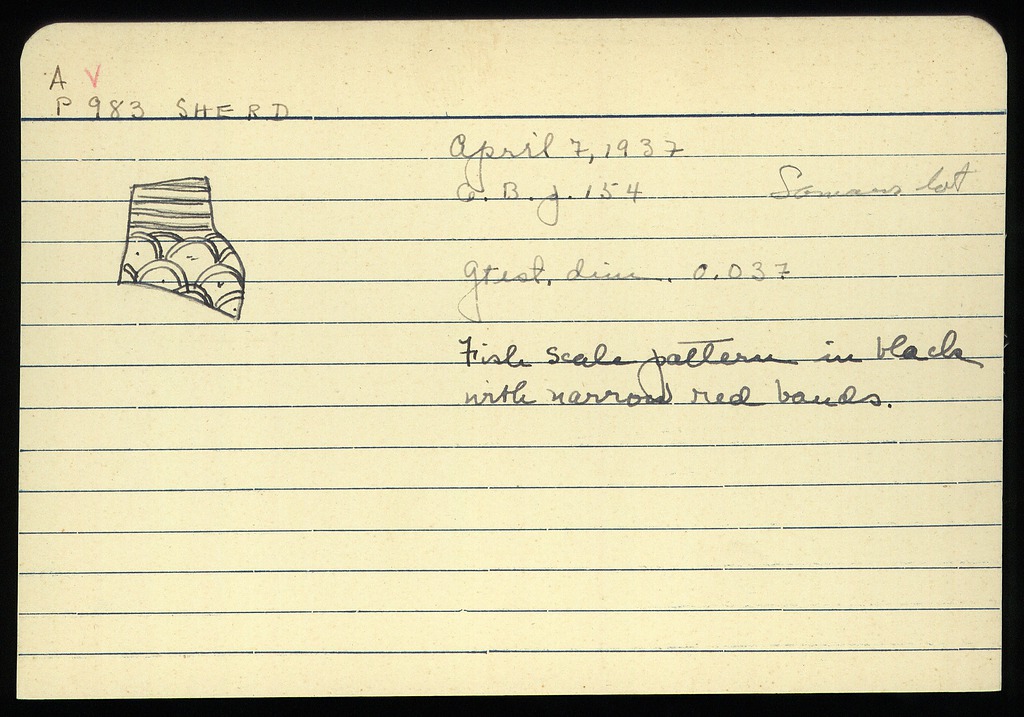 A V
P 983 SHERD
April 7, 1937
C. B. g. 154
lot
gtest. dim. 0.037
Fish scale pattern in black
with narrow red bands.